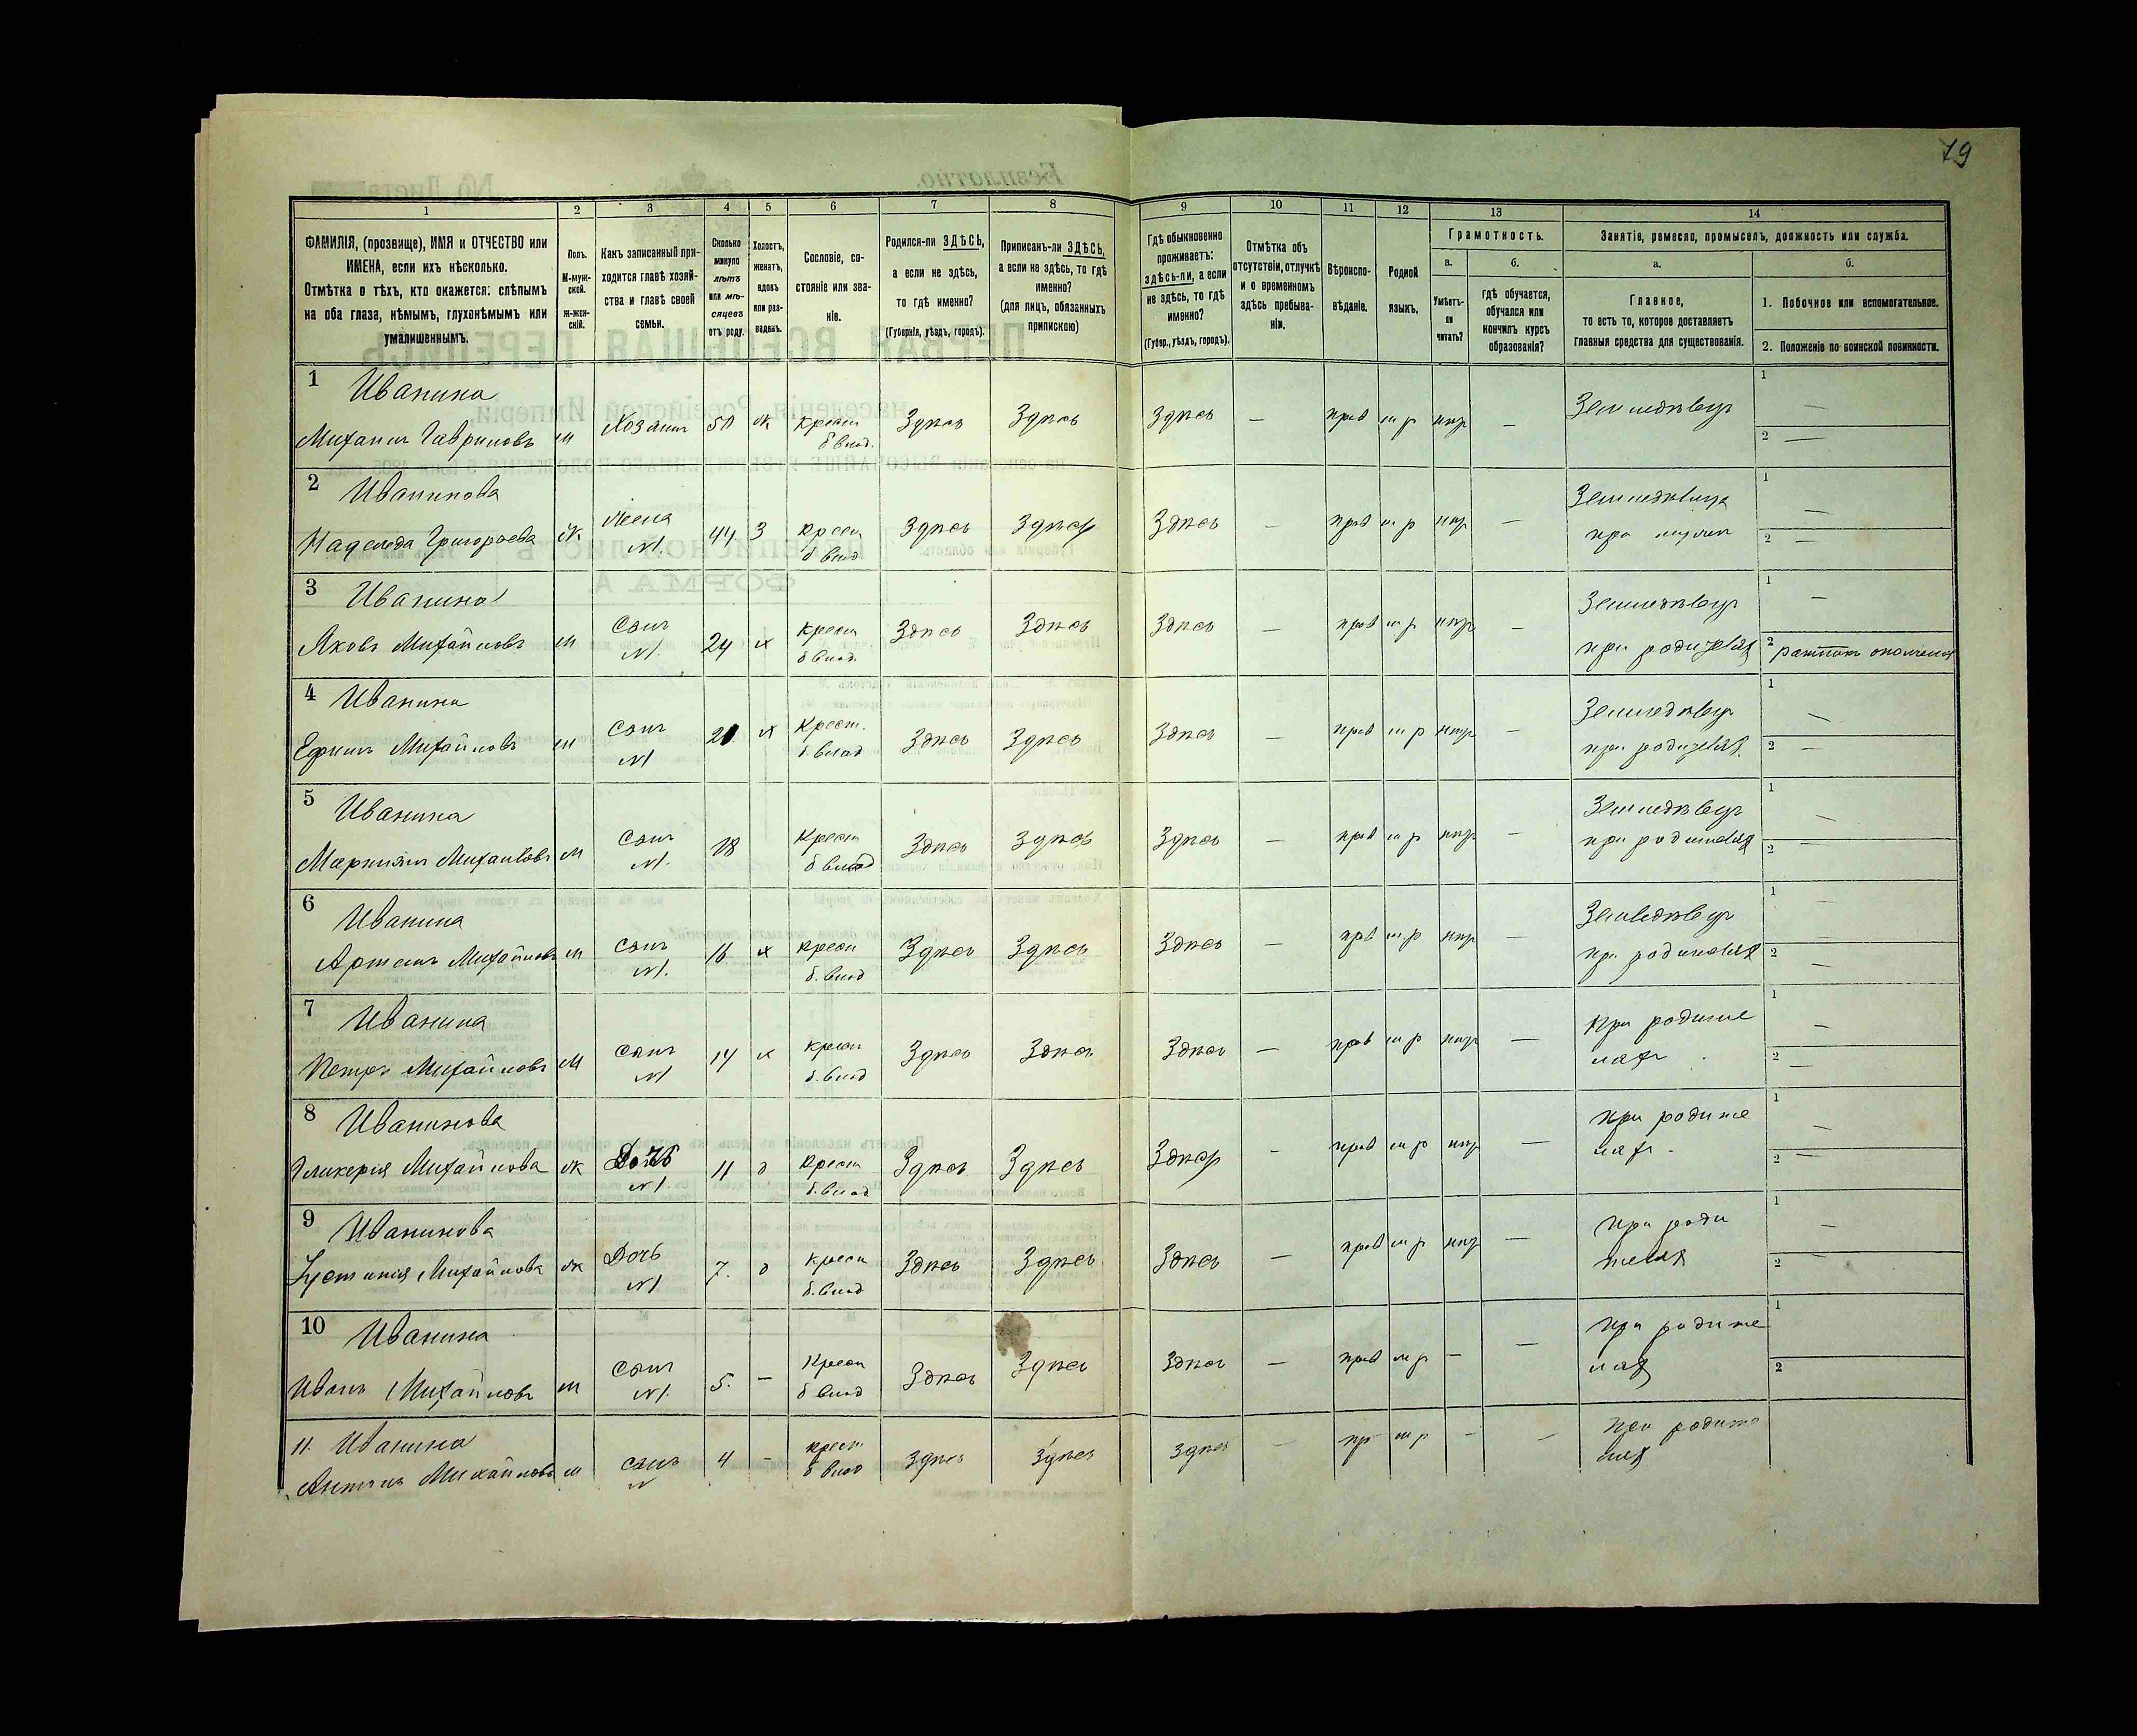 19
1 2 3 4 5 6 7 8 9 10 11 12 13 14
ФАМИЛІЯ, (прозвище), ИМЯ и ОТЧЕСТВО или
ИМЕНА, если ихъ нѣсколько.
Отмѣтка о тѣхъ, кто окажется: слѣпымъ
на оба глаза, нѣмымъ, глухонѣмымъ или
умалишеннымъ.
Полъ.
М-муж-
ской.
Ж-жен-
скій.
Какъ записанный при-
ходится главѣ хозяй-
ства и главѣ своей
семьи.
Сколько
минуло
лѣтъ
или мѣ-
сяцевъ
отъ роду.
Холостъ,
женатъ,
вдовъ
или раз-
веденъ.
Сословіе, со-
стояніе или зва-
ніе.
Родился-ли ЗДѢСЬ,
а если не здѣсь,
то гдѣ именно?
(Губернія, уѣздъ, городъ).
Приписанъ-ли ЗДѢСЬ,
а если не здѣсь, то гдѣ
именно?
(для лицъ, обязанныхъ
припискою)
Гдѣ обыкновенно
проживаетъ:
здѣсь-ли, а если
не здѣсь, то гдѣ
именно?
(Губер., уѣздъ, городъ).
Отмѣтка объ
отсутствіи, отлучкѣ
и о временномъ
здѣсь пребыва-
ніи.
Вѣроиспо-
вѣданіе.
Родной
языкъ.
Грамотность.
а.
Умѣетъ-
ли
читать?
б.
Гдѣ обучается,
обучался или
кончилъ курсъ
образованія?
Занятіе, ремесло, промыселъ, должность или служба.
а.
Главное,
то есть то, которое доставляетъ
главныя средства для существованія.
б.
1. Побочное или вспомогательное.
2. Положеніе по воинской повинности.
1 Иванина
Михаилъ Гавриловъ м Хозяинъ 50 ж крест б влад. Здѣсь Здѣсь Здѣсь — прав м р нтр — Земледѣлецъ 1 — 2 —
2 Иванинова
Надежда Григорьева ж жена №1. 44 З крест б влад. Здѣсь Здѣсь Здѣсь — прав м р — Земледѣлица
при мужѣ 1 2 —
3 Иванина
Яковъ Михайловъ м сынъ №1. 24 х крест б влад. Здѣсь Здѣсь Здѣсь — прав м р — Земледѣлецъ
при 1 — 2 ратникъ ополченія
4 Иванина
Михайловъ м сынъ №1 х Крест. б. влад Здѣсь Здѣсь Здѣсь — прав м р — Земледѣлецъ
при 1 — 2 —
5 Иванина
м сынъ №1. 18 Крест б влад Здѣсь Здѣсь Здѣсь — прав м р — Земледѣлецъ
при 1 — 2 —
6 Иванина
Артемъ Михайловъ м сынъ №1. 16 х крест б. влад Здѣсь Здѣсь Здѣсь — прав м р — Земледѣлецъ
при 1 — 2 —
7 Иванина
Петръ Михайловъ м сынъ №1 14 х крест б. влад Здѣсь Здѣсь Здѣсь — прав м р — При родите
ляхъ 1 — 2 —
8 Иванинова
Гликерія Михайлова ж Дочь №1. 11 д крест б. влад Здѣсь Здѣсь Здѣсь — прав м р — при родите
ляхъ. 1 — 2 —
9 Иванинова
Устинія Михайлова ж Дочь №1 7. д крест б. влад Здѣсь Здѣсь Здѣсь — прав м р — при роди
теляхъ 1 — 2 —
10 Иванина
Иванъ Михайловъ м сынъ №1. 5. — Крест б влад Здѣсь Здѣсь Здѣсь — прав м р — — при родите
ляхъ 1 2
11. Иванина
Антонъ Михайловъ м сынъ 4 — крест б влад Здѣсь Здѣсь Здѣсь — пр м р — — при родите
ляхъ